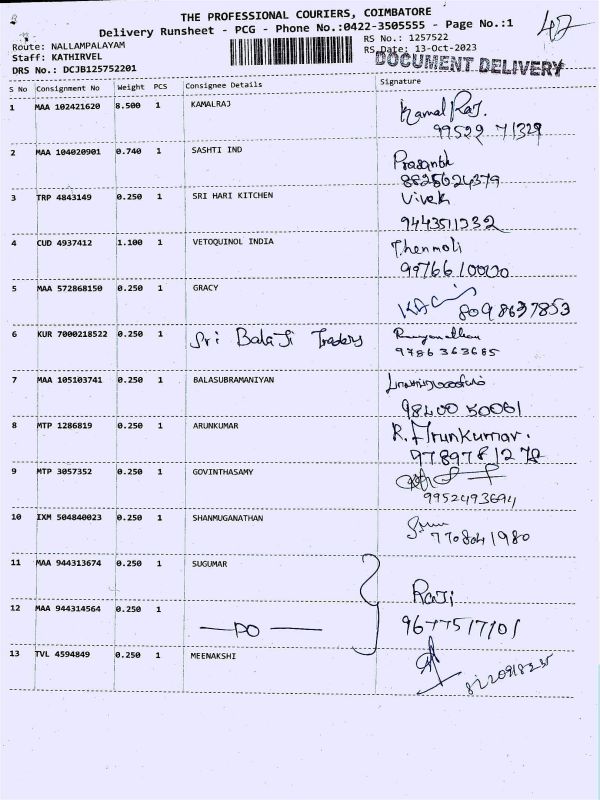 THE PROFESSIONAL COURIERS, COIMBATORE
Delivery Runsheet - PCG - Phone No.:0422-3505555 - Page No.:1
42
Route: NALLAMPALAYAM
RS No.: 1257522
Staff: KATHIRVEL
RS Date: 13-Oct-2023
DRS No.: DCJB125752201
DOCUMENT DELIVERY
S No Consignment No Weight PCS Consignee Details Signature
1 MAA 102421620 8.500 1 KAMALRAJ Kamal Raj.
99529 71329
2 MAA 104020901 0.740 1 SASHTI IND Prasanth
8825624379
3 TRP 4843149 0.250 1 SRI HARI KITCHEN Vivek
9443511332
4 CUD 4937412 1.100 1 VETOQUINOL INDIA Thenmoli
9976610000
5 MAA 572868150 0.250 1 GRACY
8098637853
6 KUR 7000218522 0.250 1 Sri Balaji Traders
9786363685
7 MAA 105103741 0.250 1 BALASUBRAMANIYAN
98400 50061
8 MTP 1286819 0.250 1 ARUNKUMAR R. Arunkumar.
9789781278
9 MTP 3057352 0.250 1 GOVINTHASAMY
9952493694
10 IXM 504840023 0.250 1 SHANMUGANATHAN
7708041980
11 MAA 944313674 0.250 1 SUGUMAR Raji
12 MAA 944314564 0.250 1 —DO— 9677517101
13 TVL 4594849 0.250 1 MEENAKSHI
8220918235